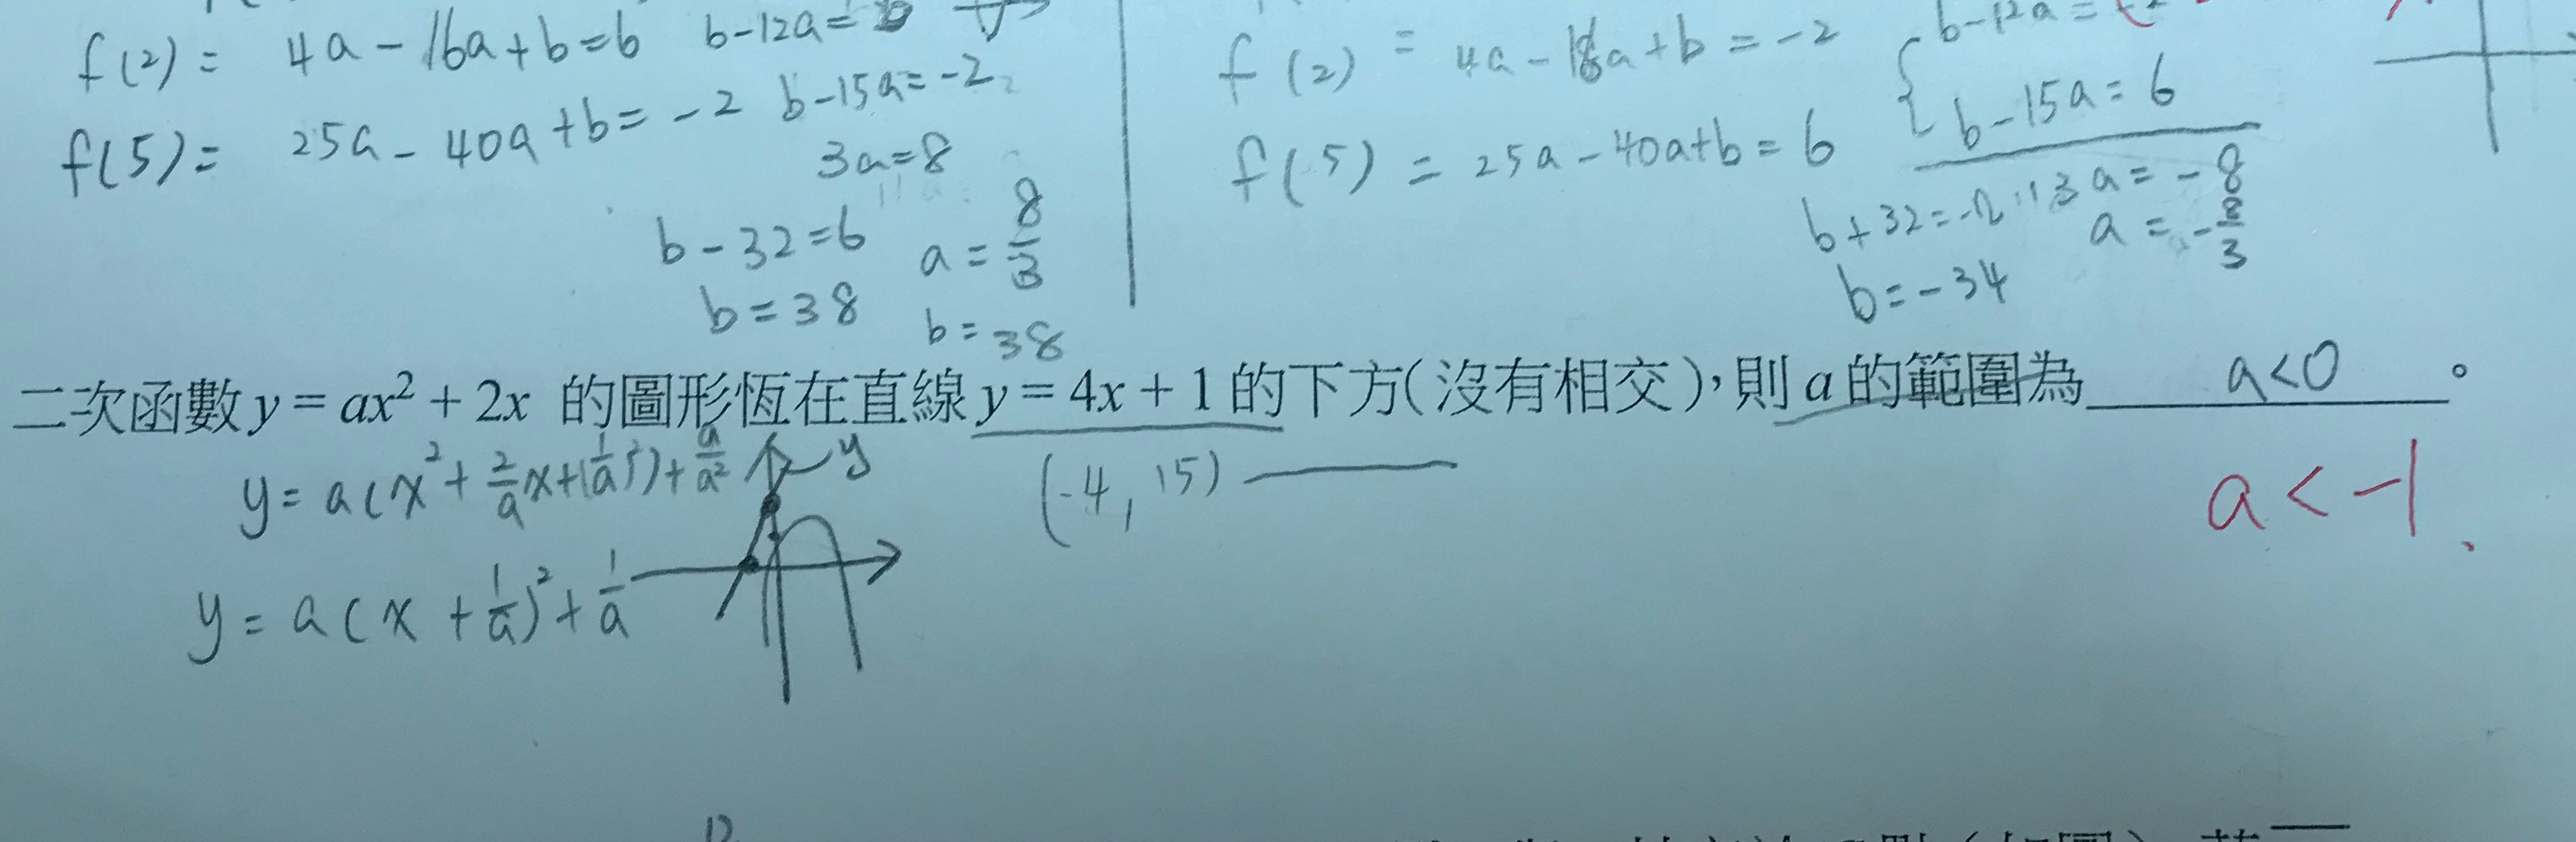 f(2) = 4a - 16a + b = 6 b - 12a = 6
f(5) = 25a - 40a + b = -2 b - 15a = -2
3a = 8
b - 32 = 6 a = 8/3
b = 38 b = 38
f(2) = 4a - 16a + b = -2 b - 12a = -2
f(5) = 25a - 40a + b = 6 b - 15a = 6
b + 32 = -2 3a = -8
a = -8/3
b = -34
二次函數 y = ax² + 2x 的圖形恆在直線 y = 4x + 1 的下方(沒有相交),則 a 的範圍為 a<0 。
y = a(x² + 2/a x + (1/a)²) + a/a² y (-4, 15) a < -1
y = a(x + 1/a)² + 1/a